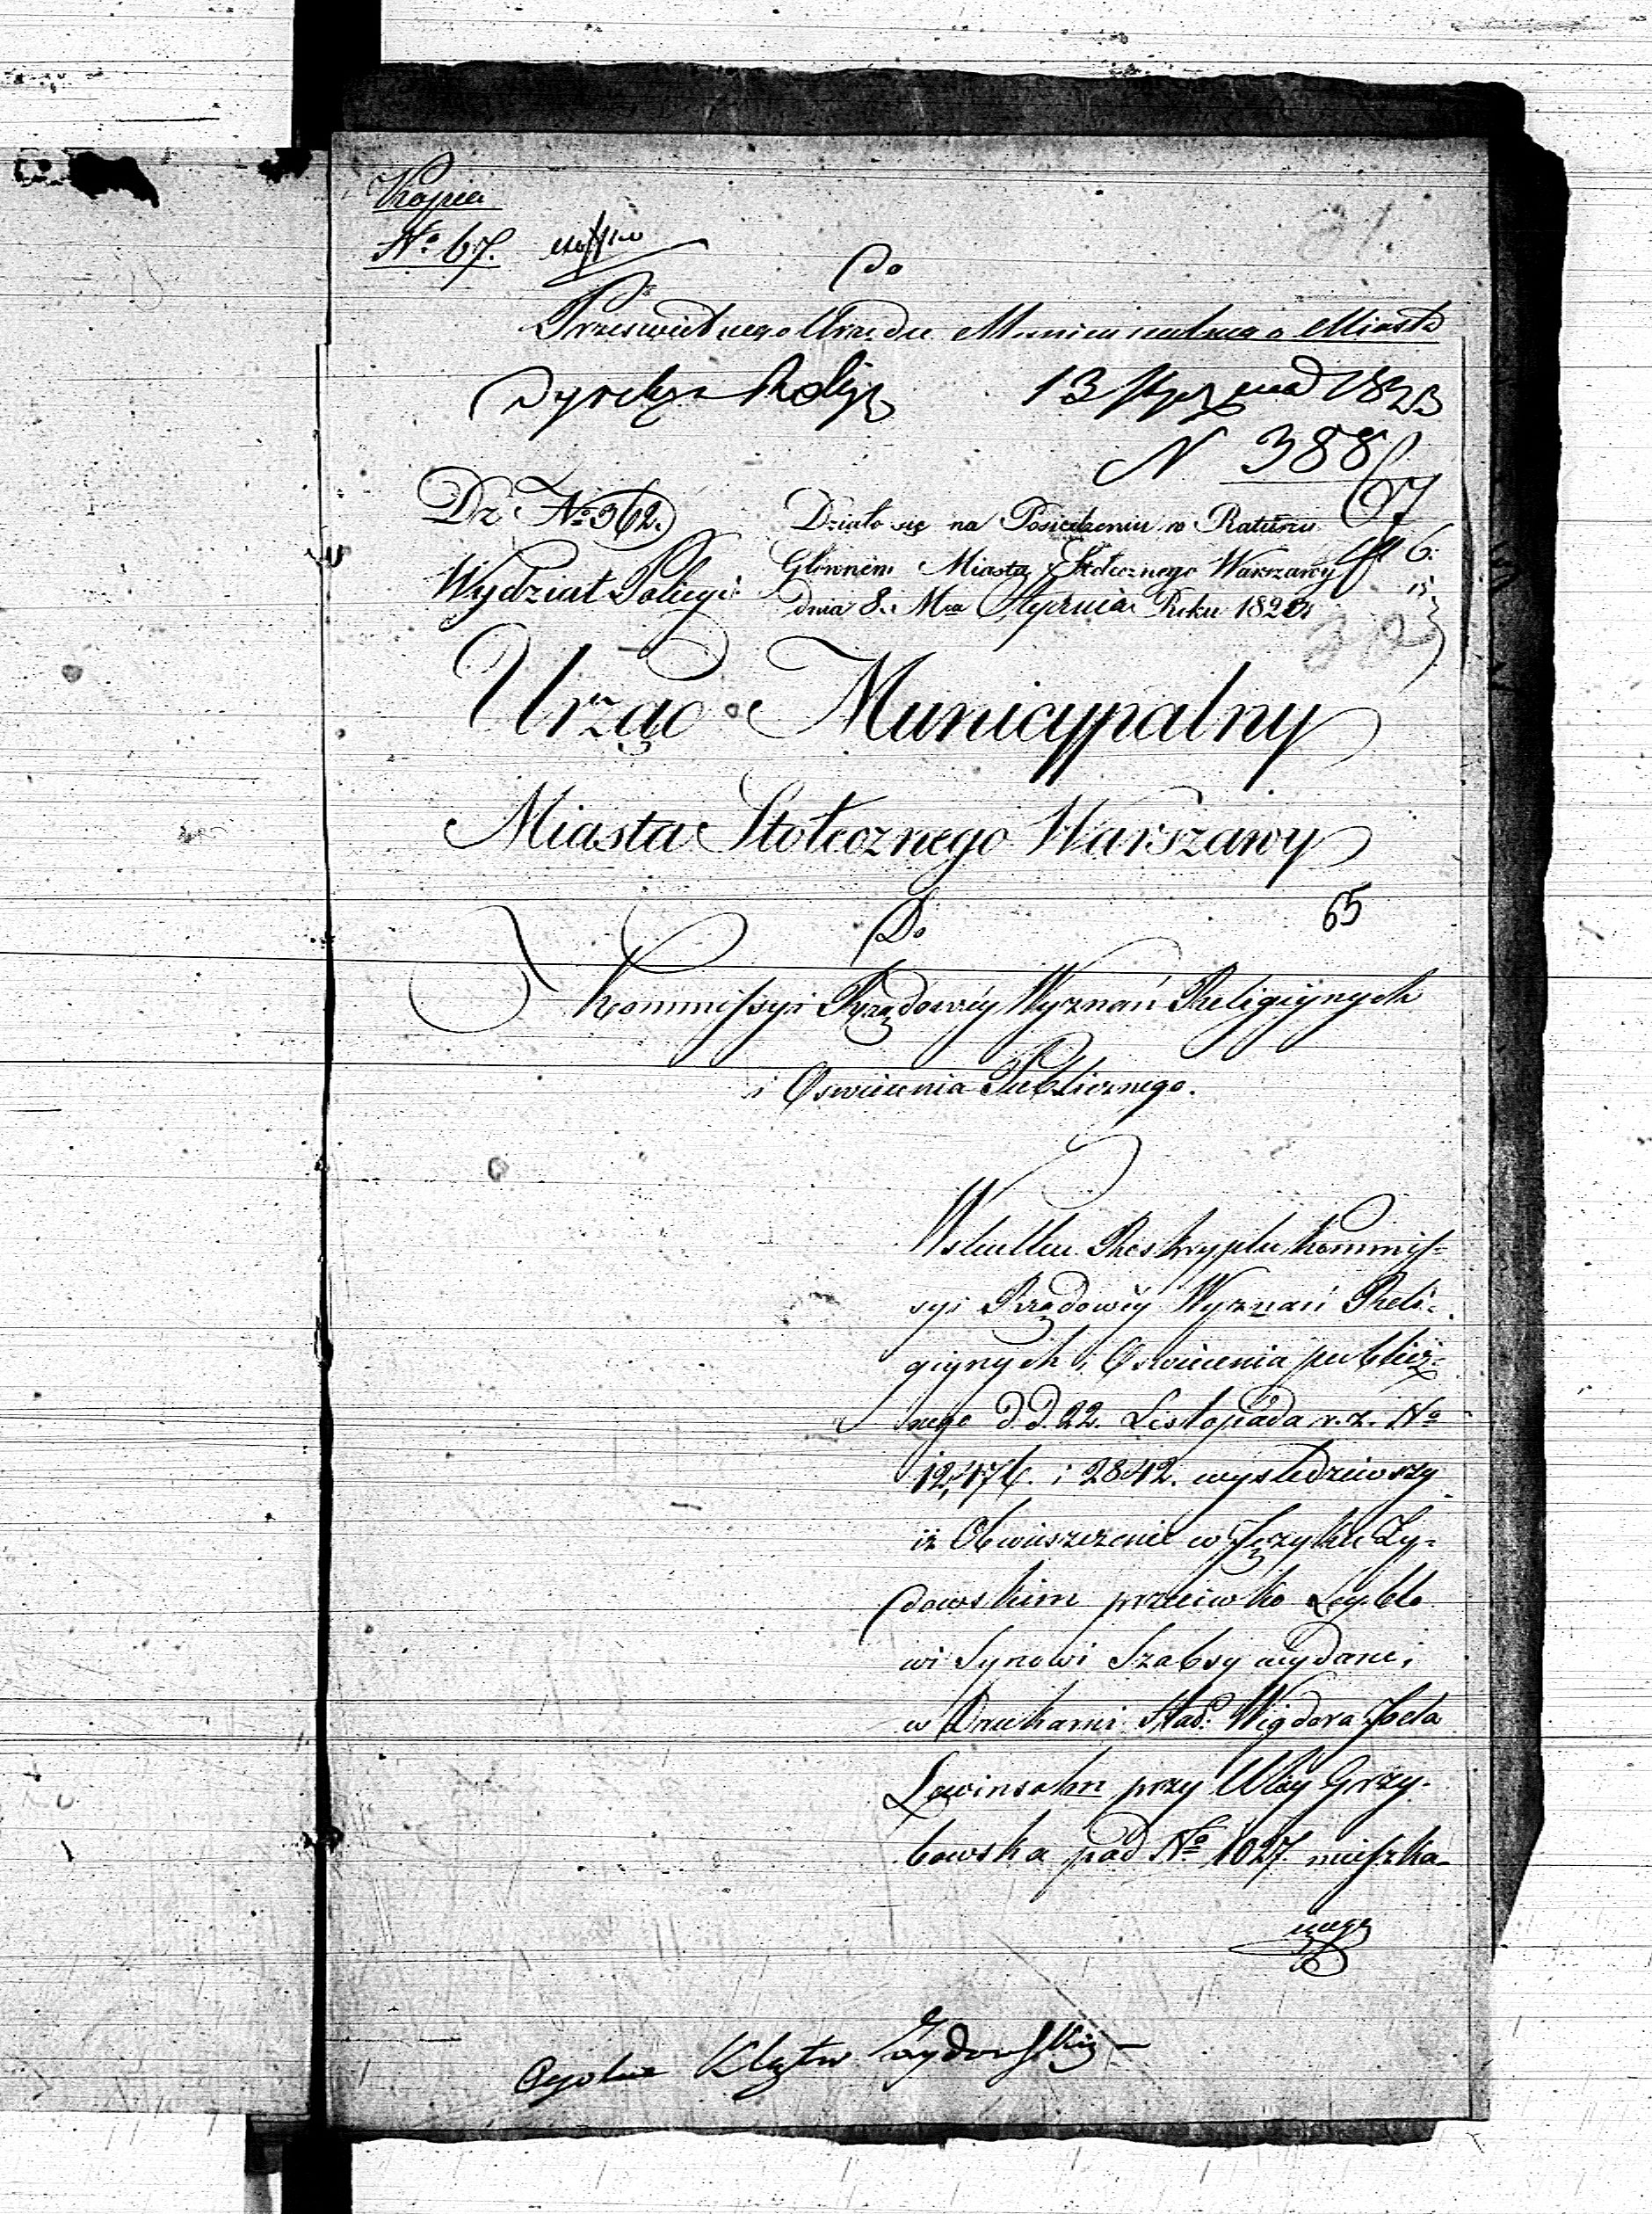 Kopia
No 67.
31.
Do
Prześwietnego Urzędu Municypalnego Miasta
Dyrekcya Policyi 13 Stycznia 1823
N 388
67
Dz. No 362. Działo się na Posiedzeniu w Ratuszu
Wydział Policyi Głównem Miasta Stołecznego Warszawy
dnia 8. Mca Stycznia Roku 1823
32
Urząd Municypalny
Miasta Stołecznego Warszawy
Do
65
Kommissyi Rządowéy Wyznań Religiynych
i Oswiecenia Publicznego.
Wskutku Reskryptu Kommis-
syi Rządowéy Wyznań Reli-
giynych i Oswiecenia publicz-
nego d.d. 22. Listopada r.z. No
12,476. i 2842. wysledziwszy
iż Obwieszczenie w Języku Ży-
dowskim przeciwko Leyblo
wi Synowi Szabsy wydane,
w Drukarni Wigdora Joela
Lewinsohn przy Ulicy Grzy-
bowska pod No 1027 mieszka-
iącego
Klątw Żydowskich